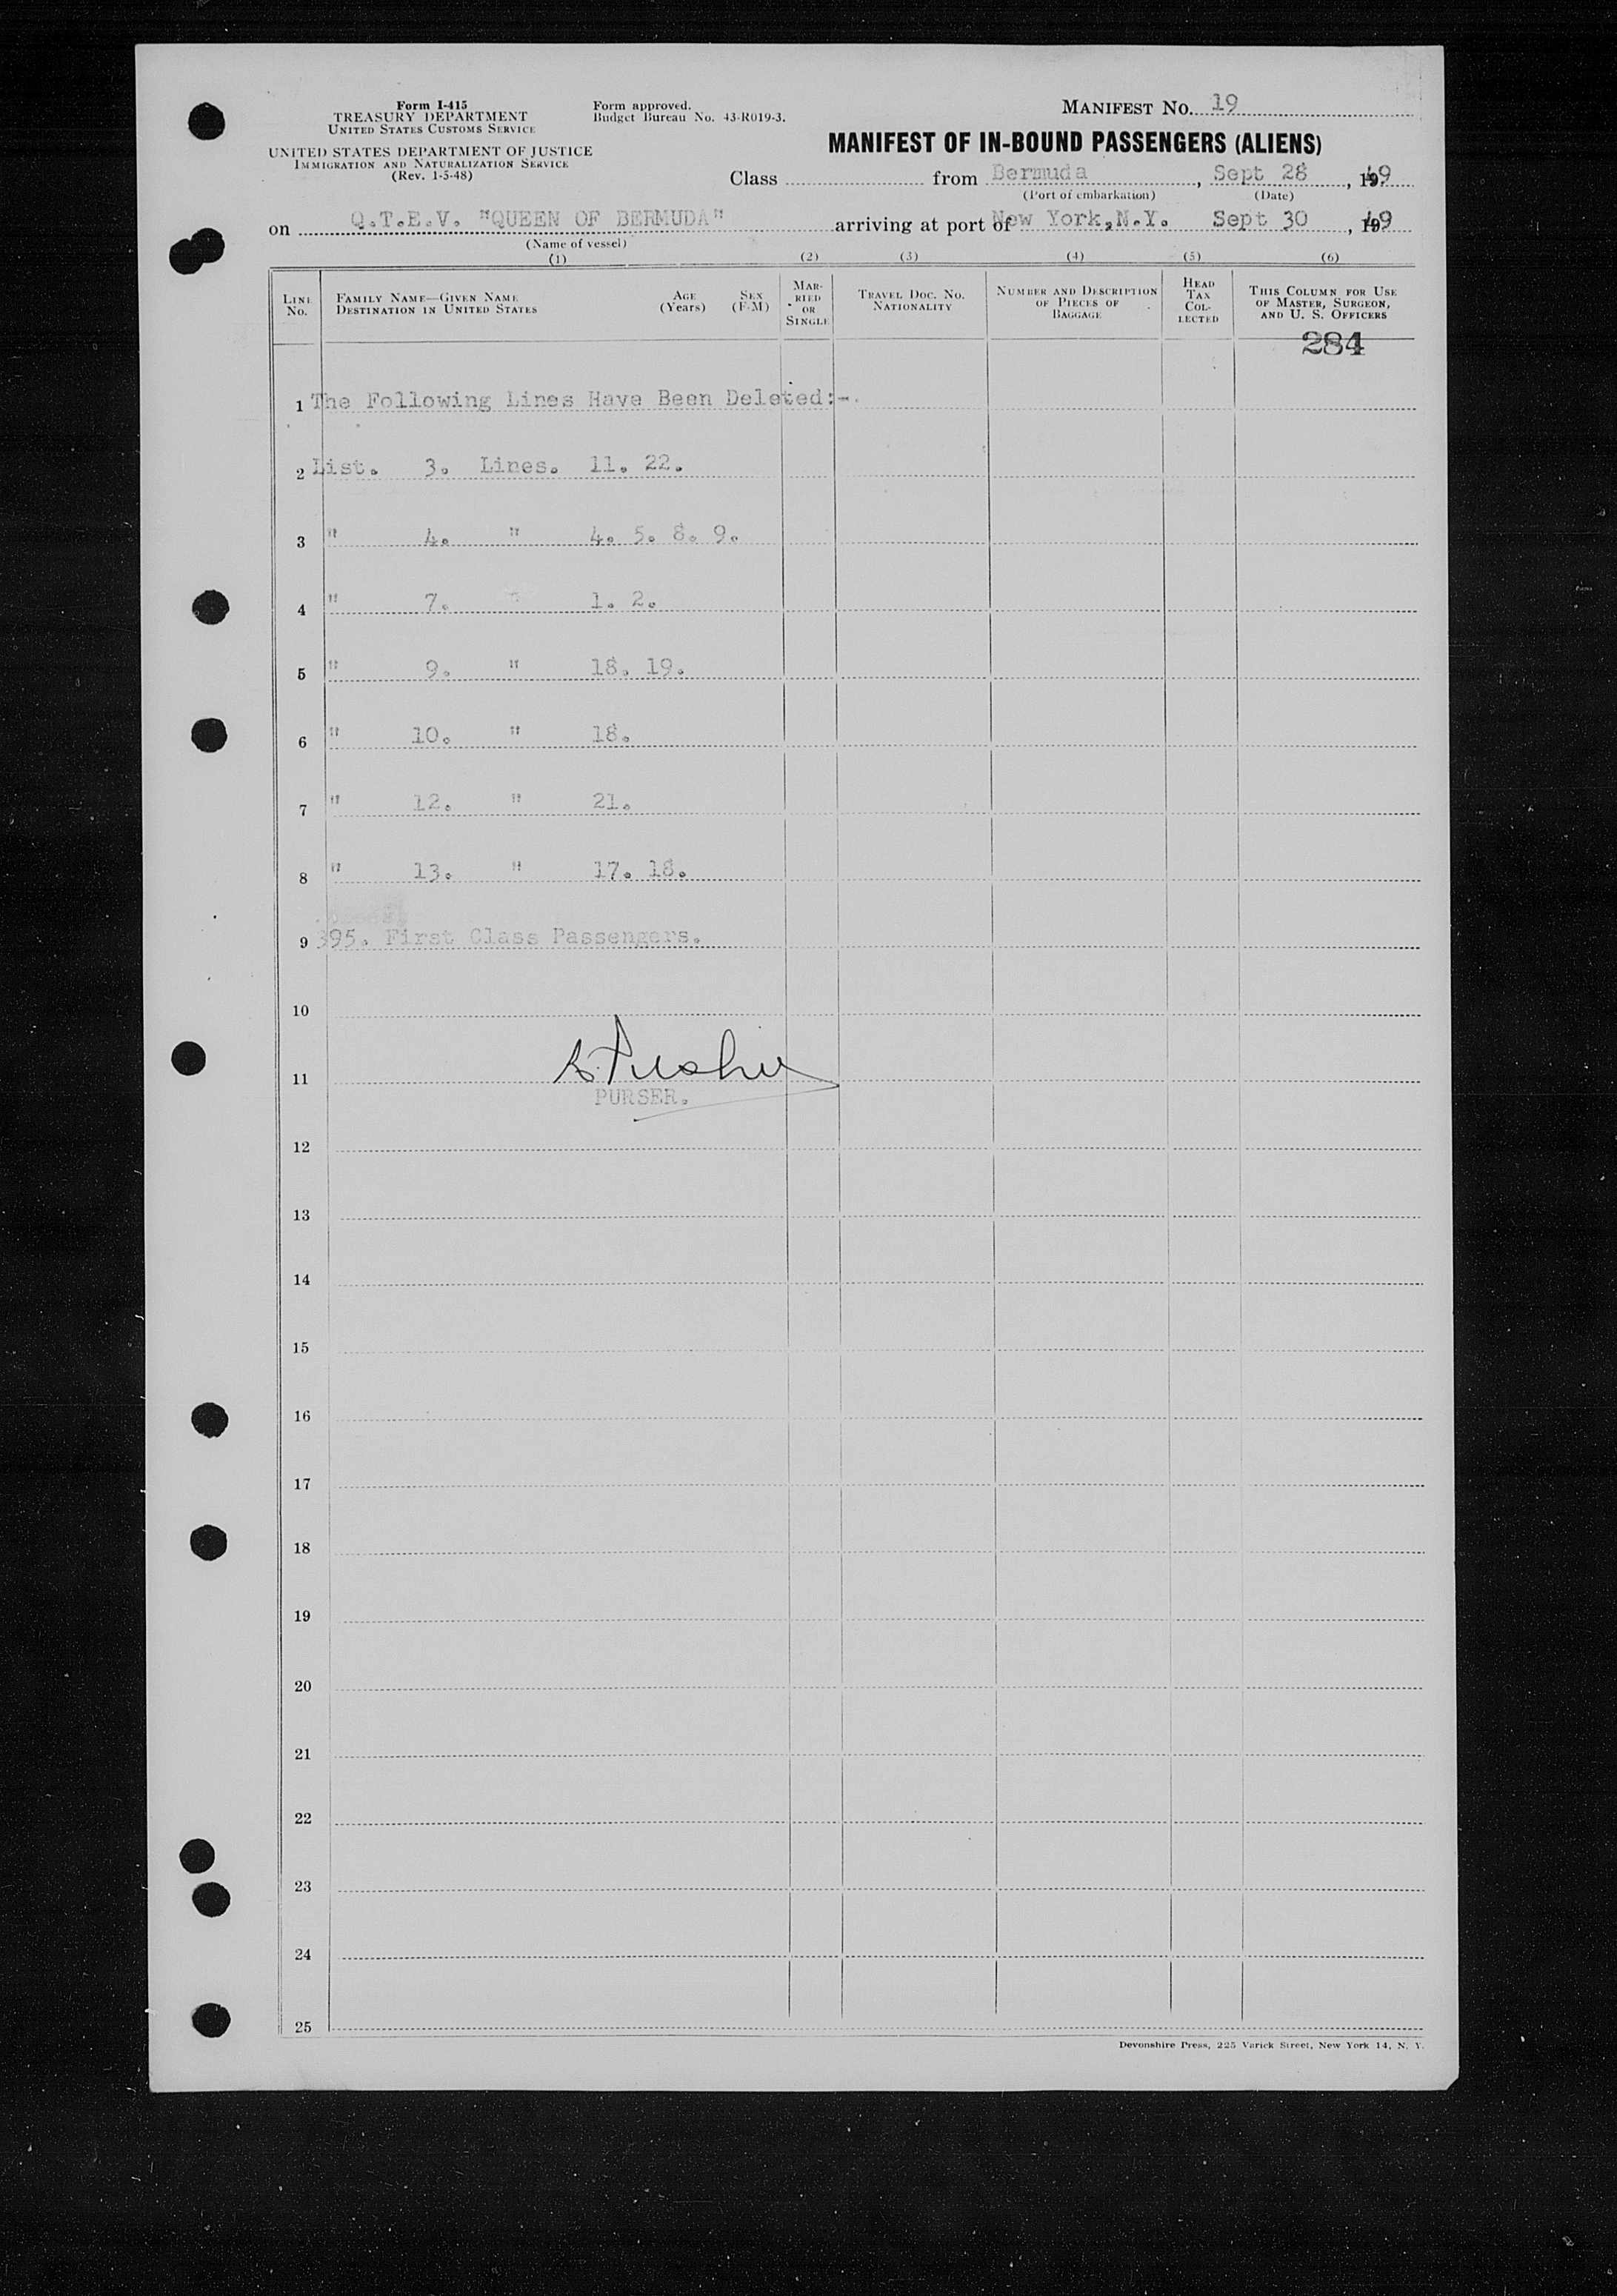 Form I-415
TREASURY DEPARTMENT
UNITED STATES CUSTOMS SERVICE
UNITED STATES DEPARTMENT OF JUSTICE
IMMIGRATION AND NATURALIZATION SERVICE
(Rev. 1-5-48)
Form approved.
Budget Bureau No. 43-R019-3.
MANIFEST NO. 19
MANIFEST OF IN-BOUND PASSENGERS (ALIENS)
Class from Bermuda, Sept 28, 1949
(Port of embarkation) (Date)
on Q.T.E.V. "QUEEN OF BERMUDA" arriving at port of New York,N.Y. Sept 30, 1949
(Name of vessel)
(1) (2) (3) (4) (5) (6)
LINE NO.
FAMILY NAME—GIVEN NAME
DESTINATION IN UNITED STATES
AGE (Years)
SEX (F-M)
MARRIED OR SINGLE
TRAVEL DOC. NO. NATIONALITY
NUMBER AND DESCRIPTION OF PIECES OF BAGGAGE
HEAD TAX COLLECTED
THIS COLUMN FOR USE OF MASTER, SURGEON, AND U. S. OFFICERS
284
1 The Following Lines Have Been Deleted:-.
2 List. 3. Lines. 11. 22.
3 " 4. " 4. 5. 8. 9.
4 " 7. " 1. 2.
5 " 9. " 18. 19.
6 " 10. " 18.
7 " 12. " 21.
8 " 13. " 17. 18.
9 395. First Class Passengers.
10
11
PURSER.
12
13
14
15
16
17
18
19
20
21
22
23
24
25
Devonshire Press, 225 Varick Street, New York 14, N. Y.